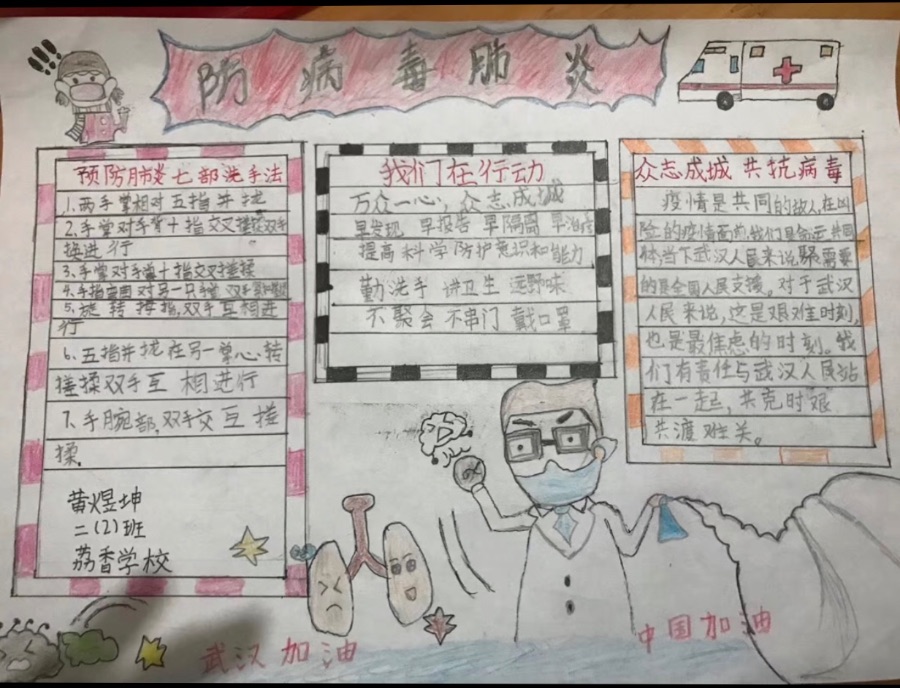 防病毒肺炎
预防肺炎七部洗手法
1.两手掌相对五指并拢
2.手掌对手背十指交叉搓揉双手
换进行
3.手掌对手掌十指交叉搓揉
5.旋转拇指,双手互相进
行
6.五指并拢在另一掌心转
搓揉双手互相进行
7.手腕部,双手交互搓
揉.
黄煜坤
二(2)班
荔香学校
我们在行动
万众一心,众志成城
早发现 早报告 早隔离 早治疗
提高科学防护意识和能力
勤洗手 讲卫生 远野味
不聚会 不串门 戴口罩
众志成城 共抗病毒
疫情是共同的敌人,在凶
险的疫情面前,我们是命运共同
体,当下武汉人民来说最需要
的是全国人民支援。对于武汉
人民来说,这是艰难时刻,
也是最焦虑的时刻。我
们有责任与武汉人民站
在一起,共克时艰
共渡难关。
武汉加油
中国加油